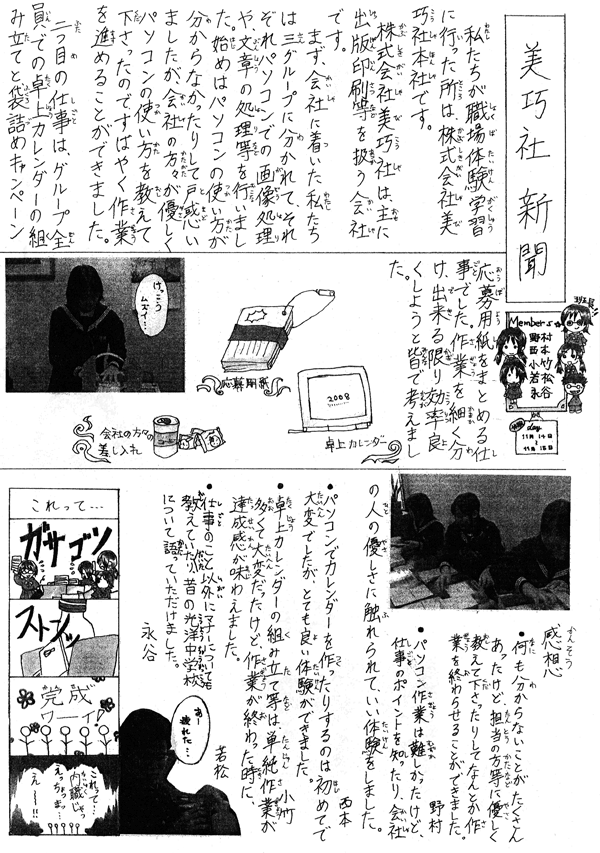 美巧社新聞
私たちが職場体験学習
に行った所は、株式会社美
巧社本社です。
株式会社美巧社は、主に
出版印刷等を扱う会社
です。
まず、会社に着いた私たち
は三グループに分かれて、それ
ぞれパソコンでの画像処理
や、文章の処理等を行いまし
た。始めはパソコンの使い方が
分からなかったりして戸惑い
ましたが、会社の方々が優しく
パソコンの使い方を教えて
下さったのですばやく作業
を進めることができました。
二つ目の仕事は、グループ全
員での卓上カレンダーの組
み立てと袋詰めキャンペーン
応募用紙をまとめる仕
事でした。作業を細く分
け、出来る限り効率良
くしようと皆で考えまし
た。
Members
野村
西本
小竹
若松
永谷
day
11月14日
11月15日
けっこう
ムズイ…
応募用紙
2008
卓上カレンダー
会社の方々の
差し入れ
感想
•何も分からないことがたくさん
あったけど、担当の方等に優しく
教えて下さったりしてなんとか作
業を終わらせることができました。
野村
•パソコン作業は難しかったけど、
仕事のポイントを知ったり、会社
の人の優しさに触れられて、いい体験をしました。
西本
•パソコンでカレンダーを作ったりするのは初めてで
大変でしたが、とても良い体験ができました。
小竹
•卓上カレンダーの組み立て等は単純作業が
多くて大変だったけど、作業が終わった時に、
達成感が味わえました。
若松
•仕事のこと以外に
教えていただり、昔の光洋中学校
について語っていただけました。
永谷
あー
疲れた…
これって…
ガサゴソ
ストンッ
完成
ワーイ
これって…
内職じゃ
え〜!!